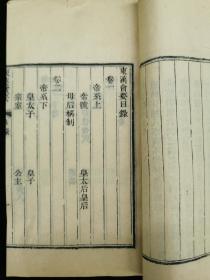 東漢會要目錄
卷一
帝系上
帝號 皇太后皇后
母后稱制
卷二
帝系下
皇太子 皇子
宗室 公主